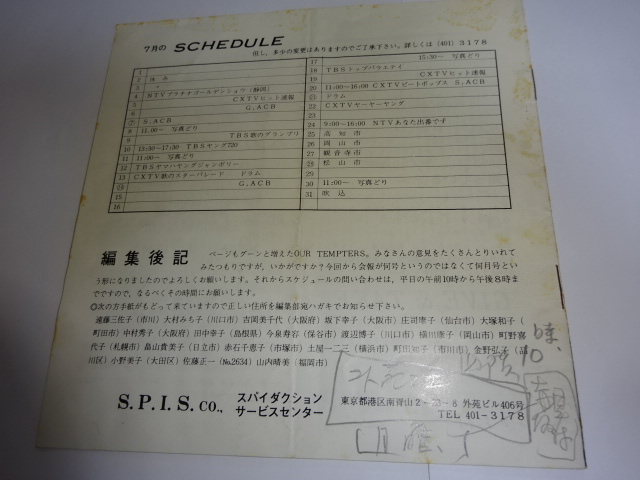 7月の SCHEDULE
但し、多少の変更はありますのでご了承下さい。詳しくは (401) 3178
1
2 休み
3 〃
4 NTVプラチナゴールデンショウ (静岡)
5 CXTVヒット速報
6 G.ACB
⑦ S.ACB
8 11:00〜 写真どり
9 TBS歌のグランプリ
10 13:30〜17:30 TBSヤング720
11 11:00〜 写真どり
12 TBSヤマハヤングジャンボリー
13 CXTV歌のスターパレード ドラム
⑭ G.ACB
15
16
17 15:30〜 写真どり
18 TBSトップバラエティ
19 CXTVヒット速報
20 11:00〜16:00 CXTVビートポップス S.ACB
㉑ ドラム
22 CXTVヤーヤーヤング
23
24 9:00〜16:00 NTVあなた出番です
25 高知市
26 岡山市
27 観音寺市
28 松山市
29
30 11:00〜 写真どり
31 吹込
編集後記
ページもグーンと増えたOUR TEMPTERS。みなさんの意見をたくさんとりいれて
みたつもりですが、いかがですか？今回から会報が何号というのではなくて何月号とい
う形になりましたのでよろしくお願いします。それからスケジュールの問い合せは、平日の午前10時から午後8時ま
でですので、なるべくその時間にお願いします。
◎次の方手紙がもどって来ていますので正しい住所を編集部宛ハガキでお知らせ下さい。
遠藤三佐子(市川) 大村みち子(川口市) 吉岡美千代(大阪市) 坂下幸子(大阪市) 庄司恵子(仙台市) 大塚和子(
町田市) 中村秀子(大阪府) 田中幸子(島根県) 今泉寿容(保谷市) 渡辺博子(川口市) 横川康子(岡山市) 町野喜
代子(札幌市) 畠山貴美子(日立市) 赤石千恵子(市塚市) 土屋一二三(横浜市) 町田知子(市川市) 金野弘子(
川区) 小野美子(大田区) 佐藤正一(No.2634) 山内晴美(福岡市)
S.P.I.S. CO., スパイダクション
サービスセンター
東京都港区南青山2－ －8 外苑ビル406号
TEL 401-3178